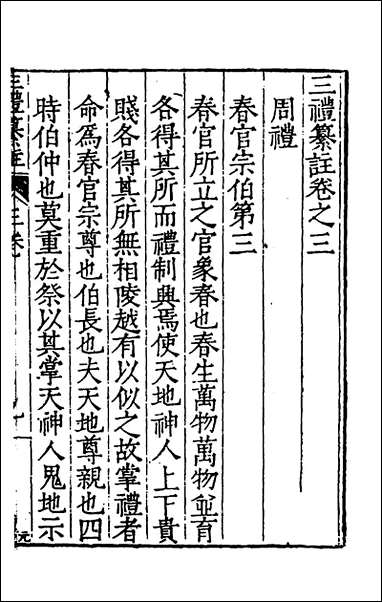 三禮纂註卷之三
周禮
春官宗伯第三
春官所立之官象春也春生萬物萬物並育
各得其所而禮制興焉使天地神人上下貴
賤各得其所無相陵越有以似之故掌禮者
命爲春官宗尊也伯長也夫天地尊親也四
時伯仲也莫重於祭以其掌天神人鬼地示
三禮纂註 三卷